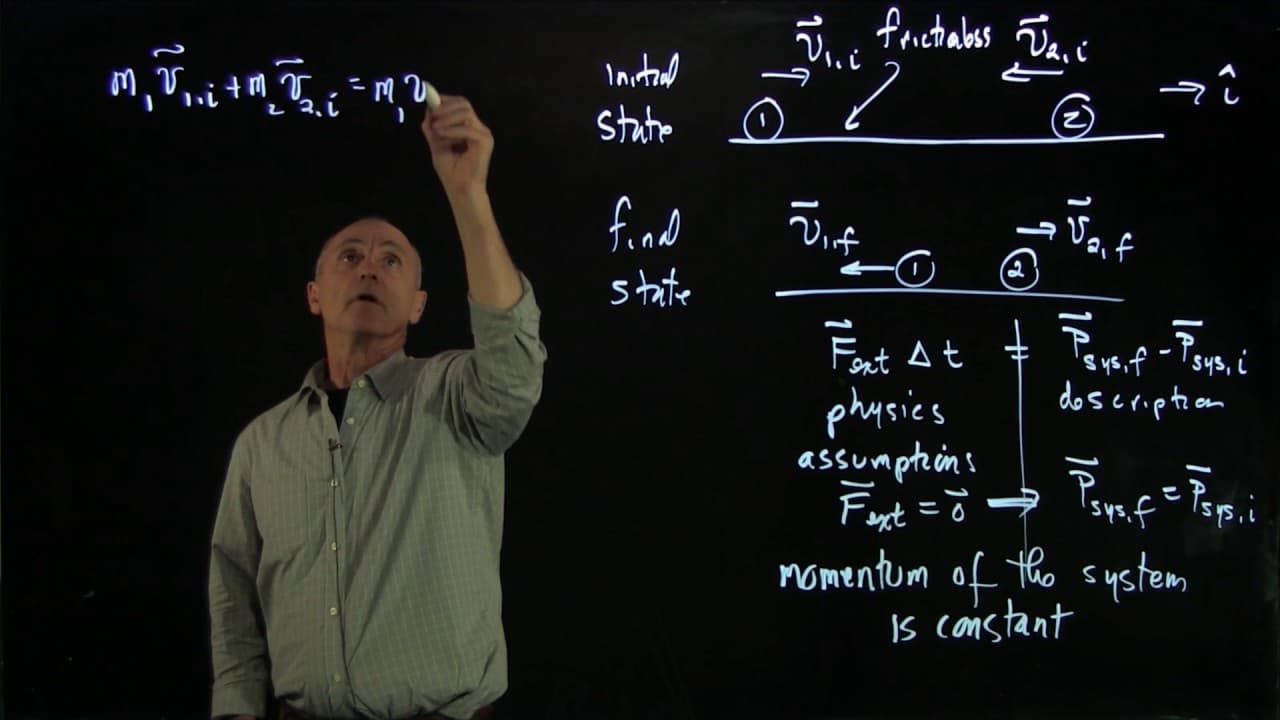 m₁v⃗₁,ᵢ + m₂v⃗₂,ᵢ = m₁v
initial state
v⃗₁,ᵢ frictionless v⃗₂,ᵢ
→ î
1 2
final state
v⃗₁,f v⃗₂,f
1 2
F⃗ext Δt = P⃗sys,f - P⃗sys,i
physics description
assumptions
F⃗ext = 0⃗ → P⃗sys,f = P⃗sys,i
momentum of the system
is constant